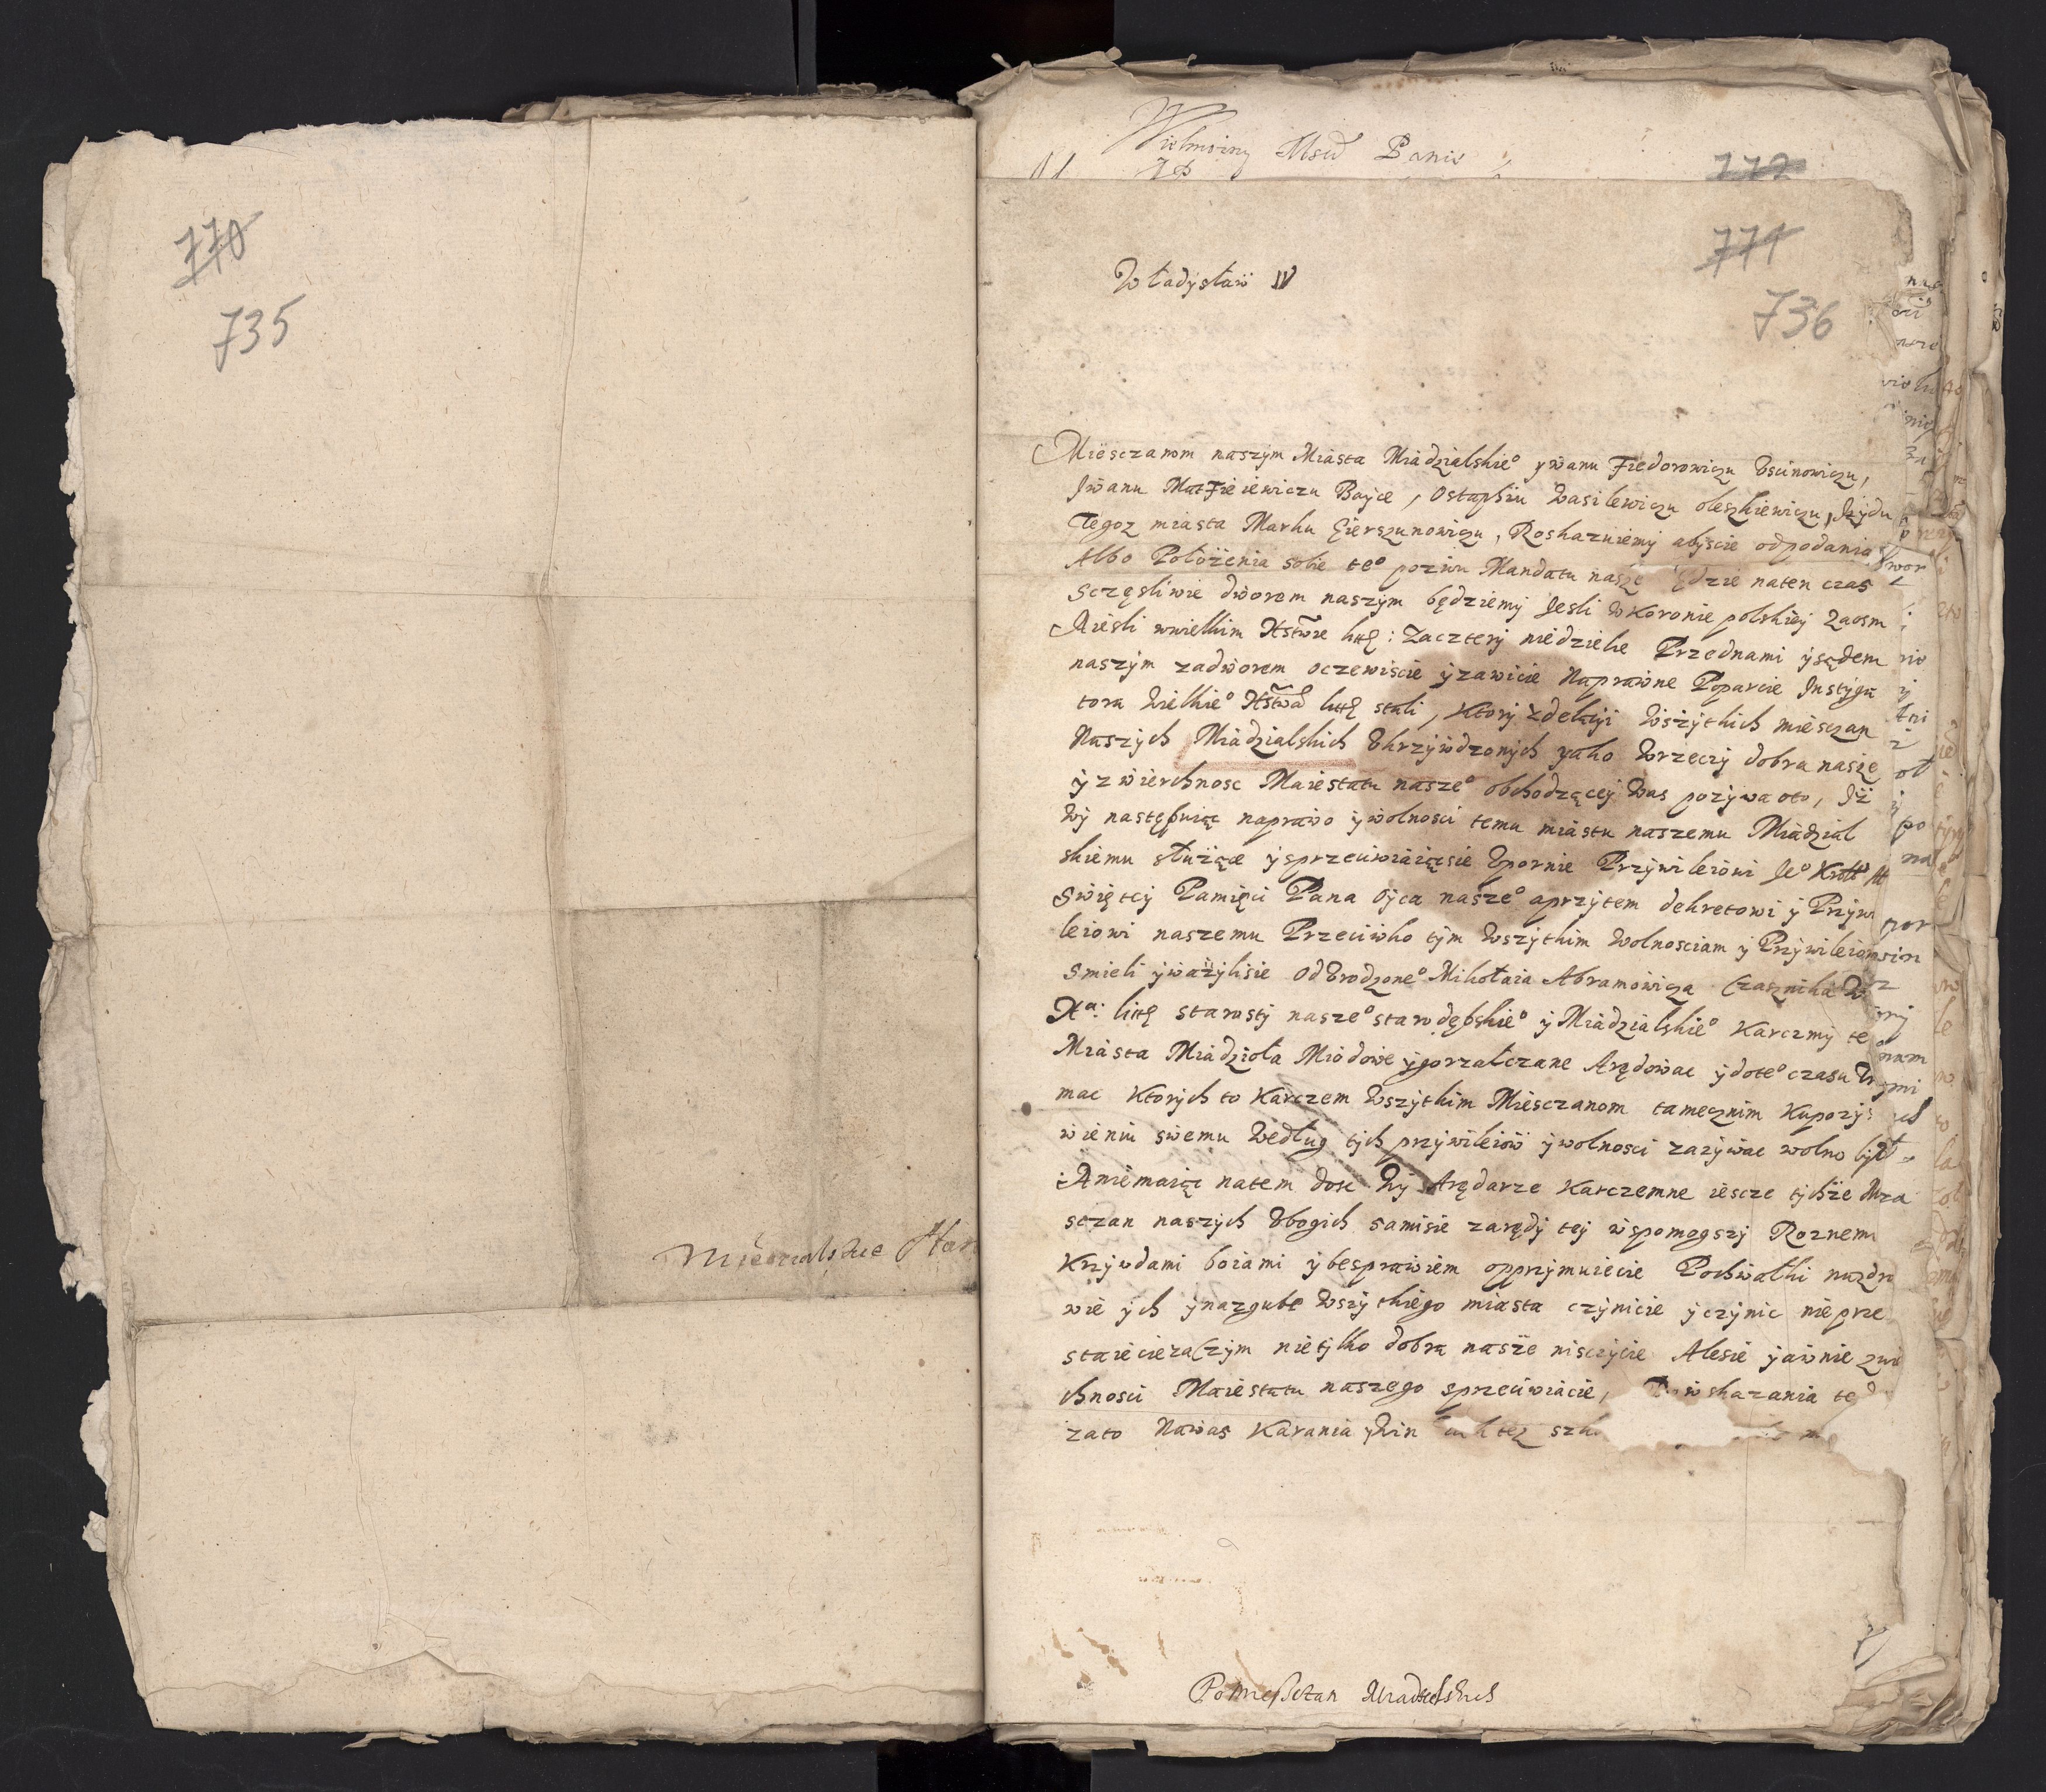 770
735
Wielmozny Mscd Panie
772
771
736
Władysław IV
Miesczanom naszym Miasta Miadzialskie° ywanu Fiedorowiczu Uscinowiczu,
Jwanu Matfieiewiczu Bayce, Ostaphiu Wasilewiczu oleszkiewiczu, Żydu
Tegoz miasta Marku Gierszunowiczu, Roskazuiemy abyscie odpodania
Albo Położenia sobie te° pozwu Mandatu nasze gdzie naten czas
Sczęsliwie dworem naszym będziemy Jesli w Koronie polskiey Zaosm
Aiesli wwielkim Xstwie litt: Zacztery niedziele Przednami ysądem
naszym zadworem oczewiscie yzawicie Naprawne Poparcie Instyga
tora Wielkie° Xstwa litt stali, Ktory zdelacyi Wszytkich miesczan
Naszych Miadzialskich Ukrzywdzonych yako Wrzeczy dobra nasze
yzwierchnosc Maiestatu nasze° obchodzącey Was pozywa oto, Iż
Wy następuiąc naprawo ywolnosci temu miastu naszemu Miadzial
skiemu służące ysprzeciwiaiącsie Upornie Przywileiowi Je° Kr
Swiętey Pamięci Pana Oyca nasze° aprzytem dekretowi y Przywi
leiowi naszemu Przeciwko tym Wszytkim Wolnosciam y Przywileiom
Smieli yważylisie OdUrodzone° Mikołaia Abramowicza Czasznika W
Xa: litt starosty nasze° starodębskie° y Miadzialskie° Karczmy te
Miasta Miadzioła Miodowe ygorzałczane Arędowac ydote° czasu trzy
mac Ktorych to Karczem Wszytkim Miesczanom tamecznim Kupozy
wieniu swemu Według tych przywileiow ywolnosci zazywac wolno było
Aniemaiąc natem dosc Wy Arędarze Karczemne iescze tychże Mia
sczan naszych Ubogich samisie zarędy tey wspomogszy Roznemi
Krzywdami boiami ybesprawiem opprymuiecie Pochwałki nazdro
wie ych ynazgubę Wszytkiego miasta czynicie yczynic nieprze
staieciezaczym nietylko dobra nasze nisczycie Alesie yawnie zwie
chnosci Maiestatu naszego sprzeciwiacie, skazania te
zato Nawas Karania ywin
Pomieszczan Miadzielskich